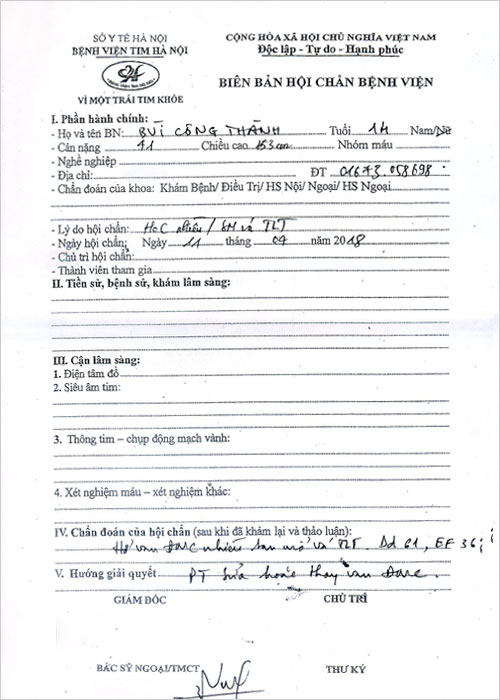 SỞ Y TẾ HÀ NỘI
BỆNH VIỆN TIM HÀ NỘI
VÌ MỘT TRÁI TIM KHỎE
CỘNG HÒA XÃ HỘI CHỦ NGHĨA VIỆT NAM
Độc lập - Tự do - Hạnh phúc
BIÊN BẢN HỘI CHẨN BỆNH VIỆN
I. Phần hành chính:
- Họ và tên BN: BÙI CÔNG THÀNH Tuổi 14 Nam/Nữ
- Cân nặng 41 Chiều cao 153 cm Nhóm máu
- Nghề nghiệp
- Địa chỉ: ĐT 01673.058698
- Chẩn đoán của khoa: Khám Bệnh/ Điều Trị/ HS Nội/ Ngoại/ HS Ngoại
- Lý do hội chẩn: HoC nhiều / sau vá TLT
- Ngày hội chẩn: Ngày 11 tháng 09 năm 2018
- Chủ trì hội chẩn:
- Thành viên tham gia
II. Tiền sử, bệnh sử, khám lâm sàng:
III. Cận lâm sàng:
1. Điện tâm đồ
2. Siêu âm tim:
3. Thông tim – chụp động mạch vành:
4. Xét nghiệm máu – xét nghiệm khác:
IV. Chẩn đoán của hội chẩn (sau khi đã khám lại và thảo luận):
Hở van ĐMC nhiều sau mổ vá TLT. Dd 61, EF 36
V. Hướng giải quyết PT sửa hoặc thay van ĐMC.
GIÁM ĐỐC
CHỦ TRÌ
BÁC SỸ NGOẠI/TMCT
THƯ KÝ